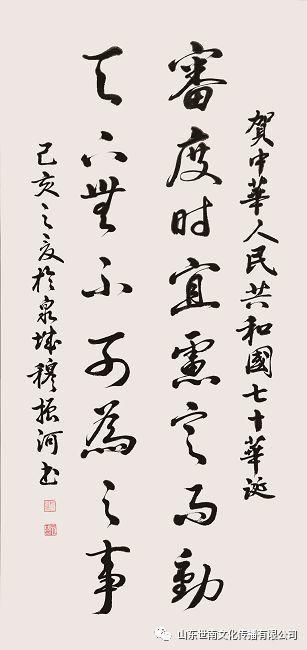 賀中華人民共和國七十華誕
審度时宜慮定而動
天下無不可為之事
己亥之夏於泉城穆振河书
山东世南文化传播有限公司